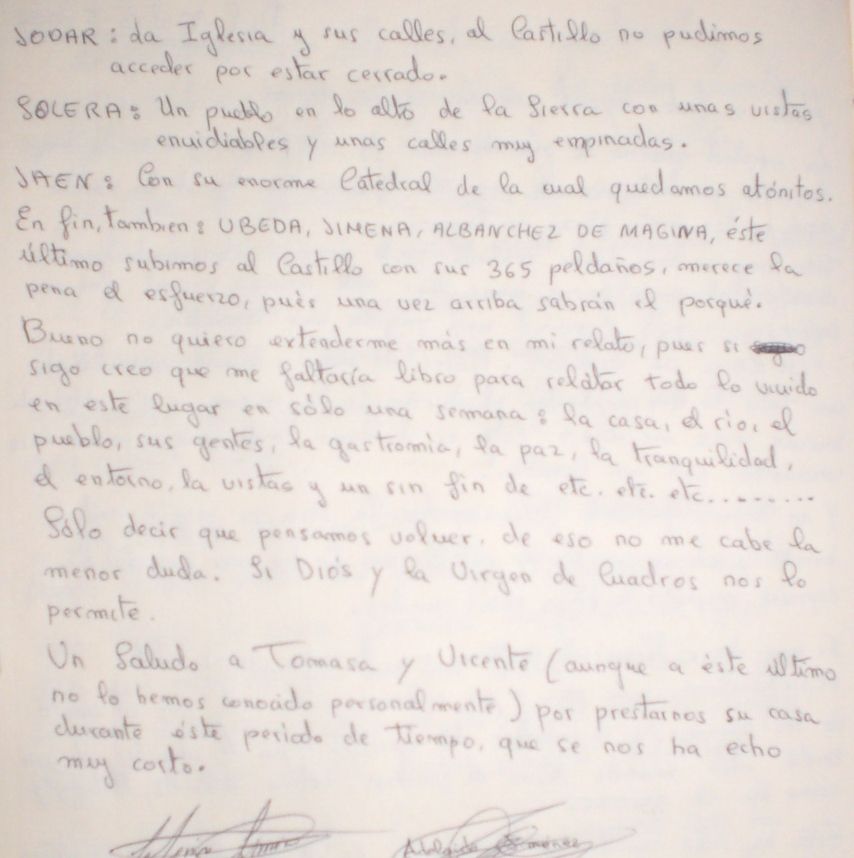 JODAR: La Iglesia y sus calles, al Castillo no pudimos
acceder por estar cerrado.
SOLERA: Un pueblo en lo alto de la Sierra con unas vistas
envidiables y unas calles muy empinadas.
JAEN: Con su enorme Catedral de la cual quedamos atónitos.
En fin, tambien: UBEDA, JIMENA, ALBANCHEZ DE MAGINA, éste
último subimos al Castillo con sus 365 peldaños, merece la
pena el esfuerzo, pués una vez arriba sabrán el porqué.
Bueno no quiero extenderme más en mi relato, pues si
sigo creo que me faltaría libro para relatar todo lo vivido
en este lugar en sólo una semana: la casa, el rio, el
pueblo, sus gentes, la gastromia, la paz, la tranquilidad,
el entorno, la vistas y un sin fin de etc. etc. etc.........
Sólo decir que pensamos volver, de eso no me cabe la
menor duda. Si Diós y la Virgen de Cuadros nos lo
permite.
Un Saludo a Tomasa y Vicente (aunque a éste último
no lo hemos conocido personalmente) por prestarnos su casa
durante éste periodo de tiempo, que se nos ha echo
muy corto.